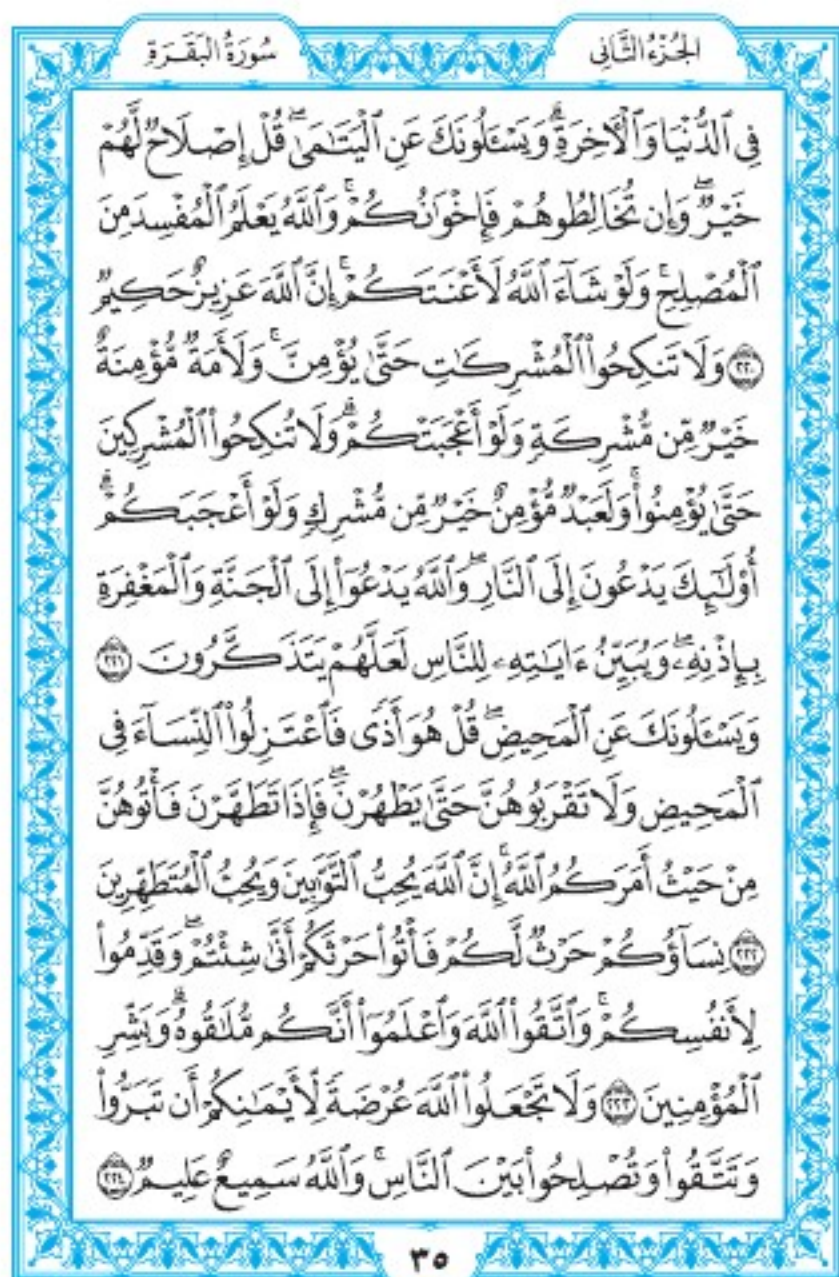 الجُزْءُ الثَّانِي
سُورَةُ البَقَرَةِ
فِي ٱلدُّنْيَا وَٱلْأَخِرَةِۗ وَيَسْـَٔلُونَكَ عَنِ ٱلْيَتَـٰمَىٰۖ قُلْ إِصْلَاحٌ لَّهُمْ
خَيْرٌۖ وَإِن تُخَالِطُوهُمْ فَإِخْوَٰنُكُمْۚ وَٱللَّهُ يَعْلَمُ ٱلْمُفْسِدَ مِنَ
ٱلْمُصْلِحِۚ وَلَوْ شَآءَ ٱللَّهُ لَأَعْنَتَكُمْۚ إِنَّ ٱللَّهَ عَزِيزٌ حَكِيمٌ
٢٢٠ وَلَا تَنكِحُوا۟ ٱلْمُشْرِكَـٰتِ حَتَّىٰ يُؤْمِنَّۚ وَلَأَمَةٌ مُّؤْمِنَةٌ
خَيْرٌ مِّن مُّشْرِكَةٍ وَلَوْ أَعْجَبَتْكُمْۗ وَلَا تُنكِحُوا۟ ٱلْمُشْرِكِينَ
حَتَّىٰ يُؤْمِنُوا۟ۚ وَلَعَبْدٌ مُّؤْمِنٌ خَيْرٌ مِّن مُّشْرِكٍ وَلَوْ أَعْجَبَكُمْۗ
أُو۟لَـٰٓئِكَ يَدْعُونَ إِلَى ٱلنَّارِۖ وَٱللَّهُ يَدْعُوٓا۟ إِلَى ٱلْجَنَّةِ وَٱلْمَغْفِرَةِ
بِإِذْنِهِۦۖ وَيُبَيِّنُ ءَايَـٰتِهِۦ لِلنَّاسِ لَعَلَّهُمْ يَتَذَكَّرُونَ ٢٢١
وَيَسْـَٔلُونَكَ عَنِ ٱلْمَحِيضِۖ قُلْ هُوَ أَذًى فَٱعْتَزِلُوا۟ ٱلنِّسَآءَ فِي
ٱلْمَحِيضِ وَلَا تَقْرَبُوهُنَّ حَتَّىٰ يَطْهُرْنَۖ فَإِذَا تَطَهَّرْنَ فَأْتُوهُنَّ
مِنْ حَيْثُ أَمَرَكُمُ ٱللَّهُۚ إِنَّ ٱللَّهَ يُحِبُّ ٱلتَّوَّٰبِينَ وَيُحِبُّ ٱلْمُتَطَهِّرِينَ
٢٢٢ نِسَآؤُكُمْ حَرْثٌ لَّكُمْ فَأْتُوا۟ حَرْثَكُمْ أَنَّىٰ شِئْتُمْۖ وَقَدِّمُوا۟
لِأَنفُسِكُمْۚ وَٱتَّقُوا۟ ٱللَّهَ وَٱعْلَمُوٓا۟ أَنَّكُم مُّلَـٰقُوهُۗ وَبَشِّرِ
ٱلْمُؤْمِنِينَ ٢٢٣ وَلَا تَجْعَلُوا۟ ٱللَّهَ عُرْضَةً لِّأَيْمَـٰنِكُمْ أَن تَبَرُّوا۟
وَتَتَّقُوا۟ وَتُصْلِحُوا۟ بَيْنَ ٱلنَّاسِۚ وَٱللَّهُ سَمِيعٌ عَلِيمٌ ٢٢٤
٣٥